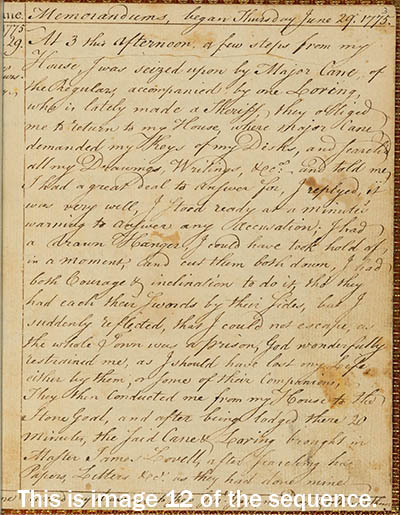 Memorandums, began Thursday June 29, 1775.
1775
29.
At 3 this afternoon, a few steps from my
House, I was seized upon by Major Cane, of
the Regulars, accompanied by one Loring,
who is lately made a Sheriff, they obliged
me to return to my House, where Major Cane
demanded my Keys of my Desks, and search'd
all my Drawings, Writings, &ca. and told me
I had a great deal to answer for, I replyed, it
was very well, I stood ready at a minute's
warning to answer any Accusation; I had
a drawn Hanger, I could have took hold of
in a moment, and cut them both down, I had
both Courage & inclination to do it, tho' they
had each their Swords by their sides, but I
suddenly reflected, that I could not escape, as
the whole Town was a prison, God wonderfully
restrained me, as I should have lost my Life
either by them, or some of their Companions;
They then conducted me from my House to the
Stone Goal, and after being lodged there 20
Minutes, the said Cane & Loring brought in
Master James Lovell, after searching his
Papers, Letters &ca. as they had done mine
This is image 12 of the sequence.